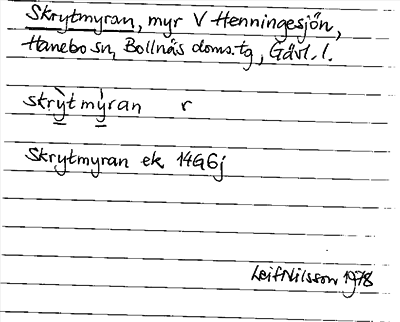 Skrytmyran, myr V Henningesjön,
Hanebo sn, Bollnäs doms.tg, Gävl. l.
skrỳtmỳran r
Skrytmyran ek 14G6j
Leif Nilsson 1978